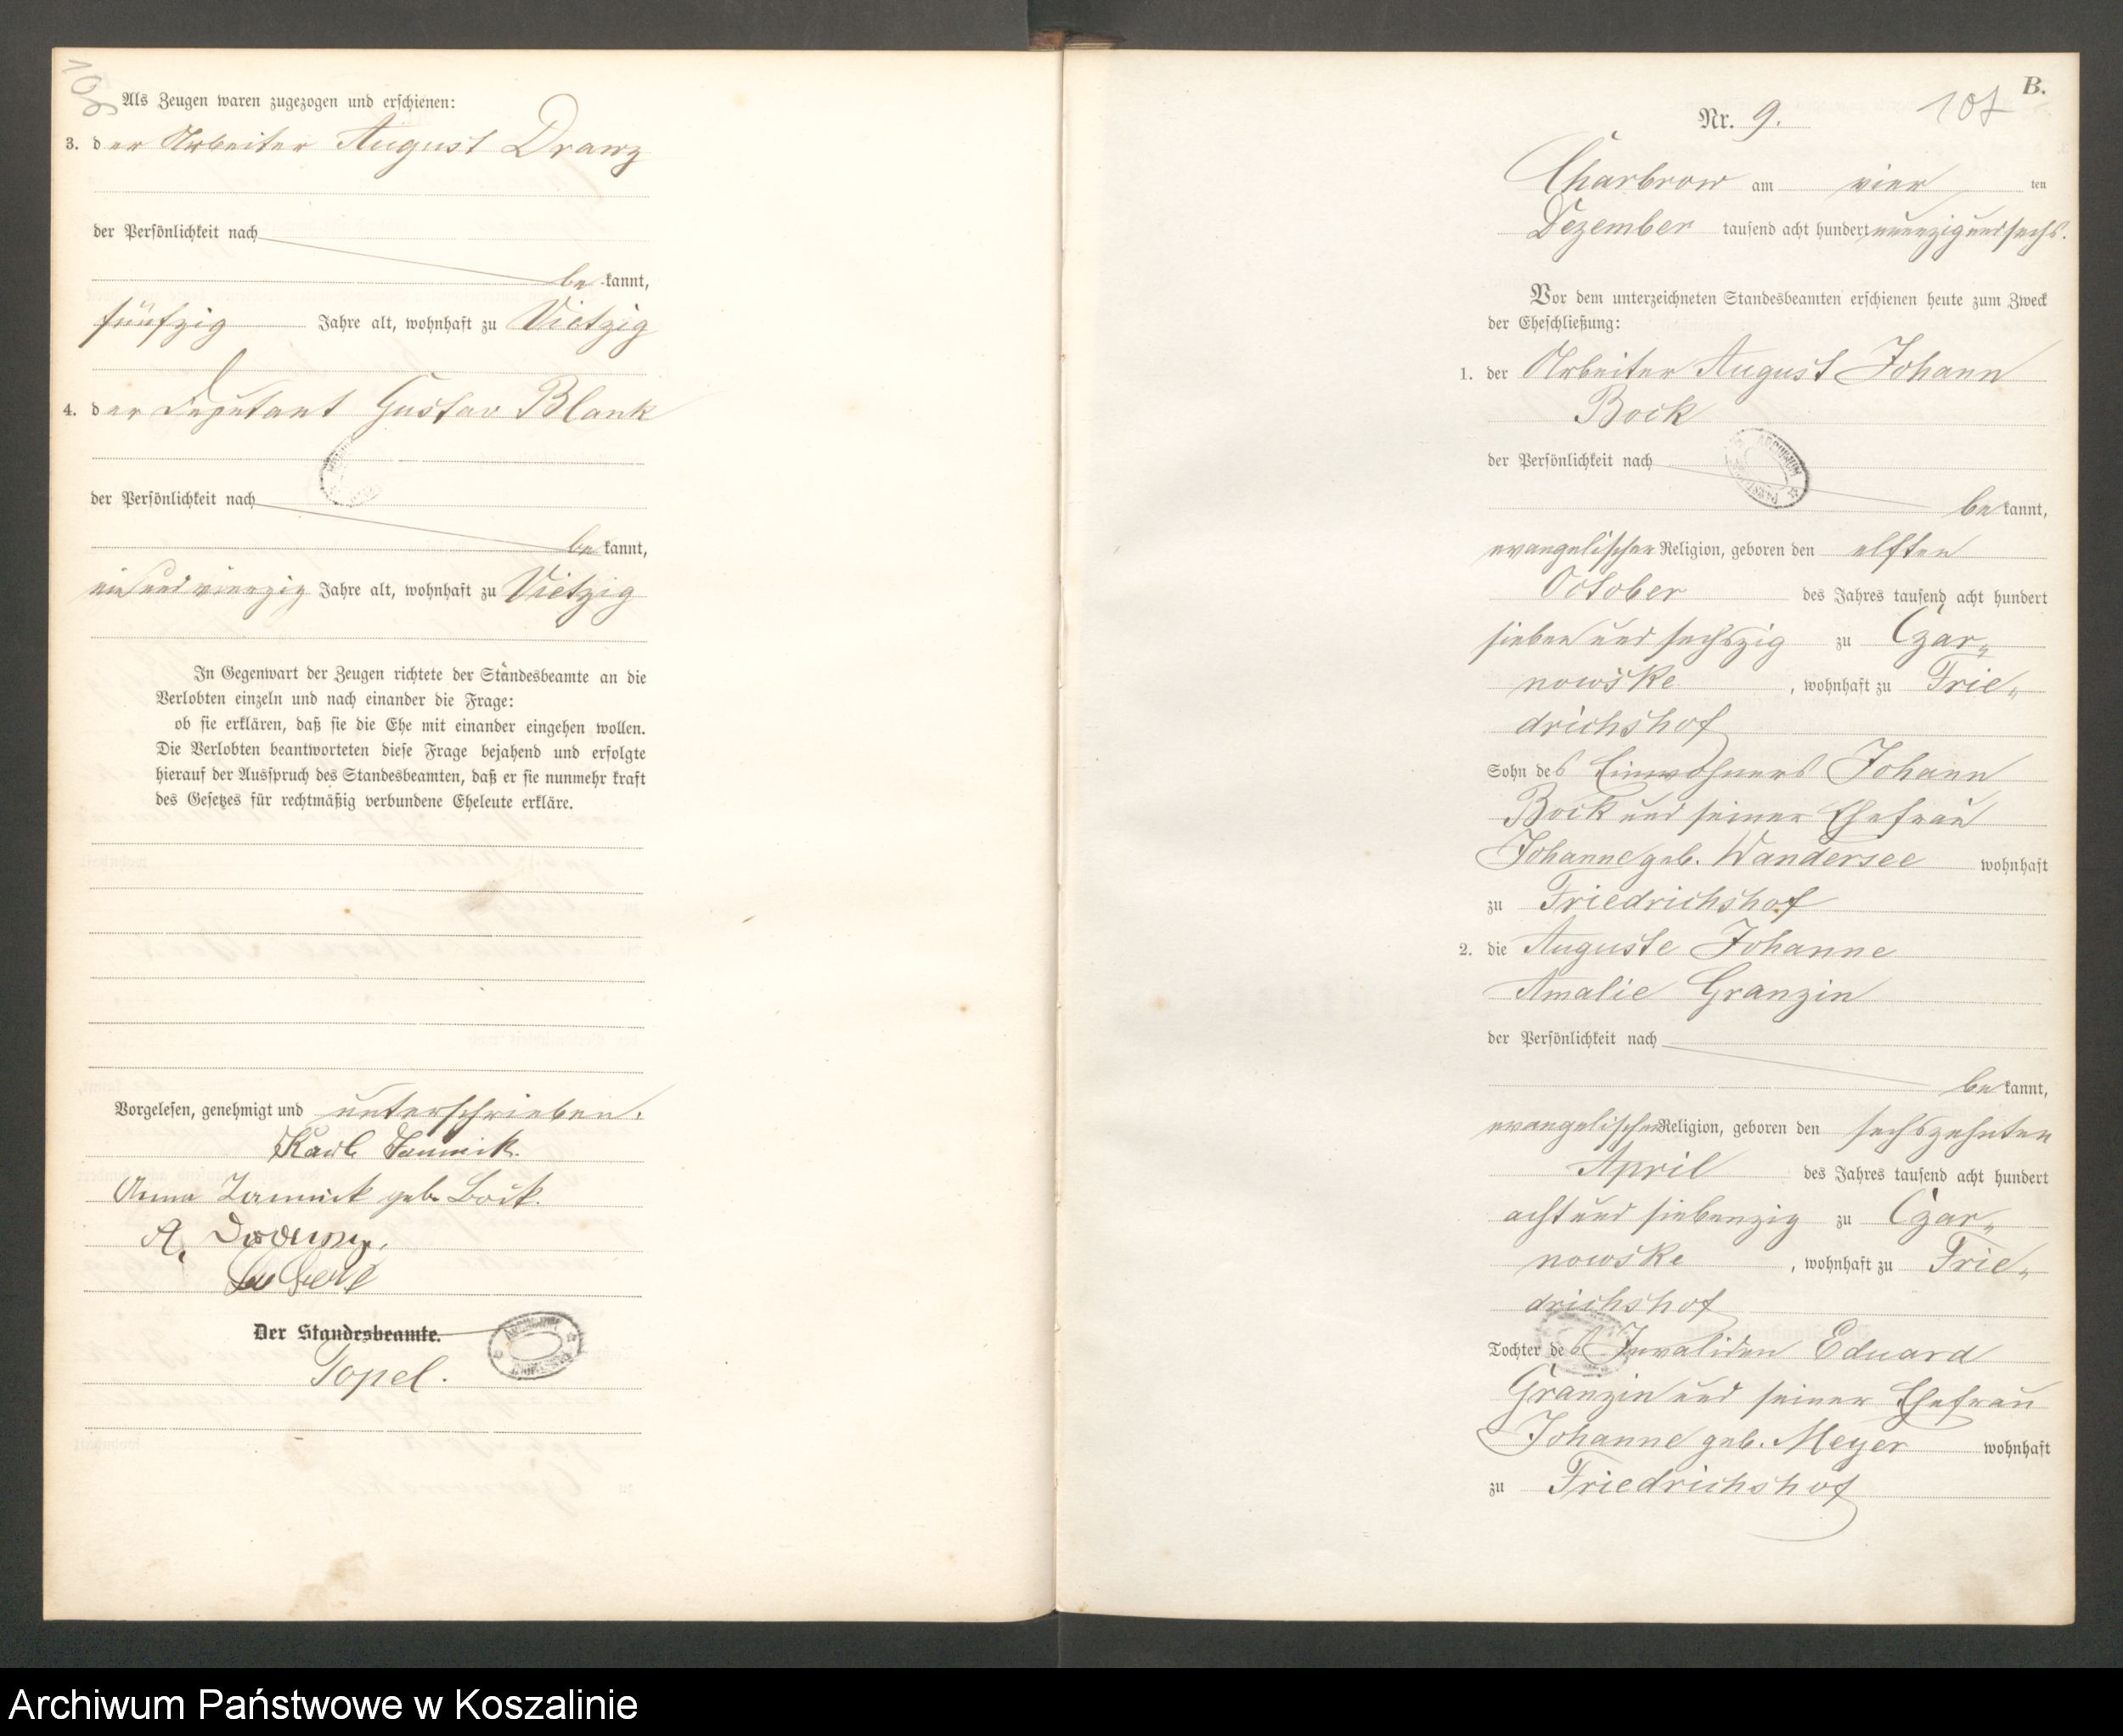 Als Zeugen waren zugezogen und erschienen:
3. der Arbeiter August Drawz
der Persönlichkeit nach
bekannt,
fünfzig Jahre alt, wohnhaft zu Vietzig
4. der Deputant Gustav Blank
der Persönlichkeit nach
bekannt,
ein und vierzig Jahre alt, wohnhaft zu Vietzig
In Gegenwart der Zeugen richtete der Standesbeamte an die
Verlobten einzeln und nach einander die Frage:
ob sie erklären, daß sie die Ehe mit einander eingehen wollen.
Die Verlobten beantworteten diese Frage bejahend und erfolgte
hierauf der Ausspruch des Standesbeamten, daß er sie nunmehr kraft
des Gesetzes für rechtmäßig verbundene Eheleute erkläre.
Vorgelesen, genehmigt und unterschrieben.
Karl
Anna geb. Bock.
A.
Der Standesbeamte.
Topel.
B.
107
Nr. 9.
Charbrow am vier ten
Dezember tausend acht hundert neunzig und sechs.
Vor dem unterzeichneten Standesbeamten erschienen heute zum Zweck
der Eheschließung:
1. der Arbeiter August Johann
Bock
der Persönlichkeit nach
bekannt,
evangelischer Religion, geboren den elften
October des Jahres tausend acht hundert
sieben und sechszig zu Czar„
nowske, wohnhaft zu Frie„
drichshof
Sohn des Einwohners Johann
Bock und seiner Ehefrau
Johanne geb. Wandersee wohnhaft
zu Friedrichshof
2. die Auguste Johanne
Amalie Granzin
der Persönlichkeit nach
bekannt,
evangelischer Religion, geboren den sechszehnten
April des Jahres tausend acht hundert
acht und siebenzig zu Czar„
nowske, wohnhaft zu Frie„
drichshof
Tochter des Invaliden Eduard
Granzin und seiner Ehefrau
Johanne geb. Meyer wohnhaft
zu Friedrichshof
Archiwum Państwowe w Koszalinie